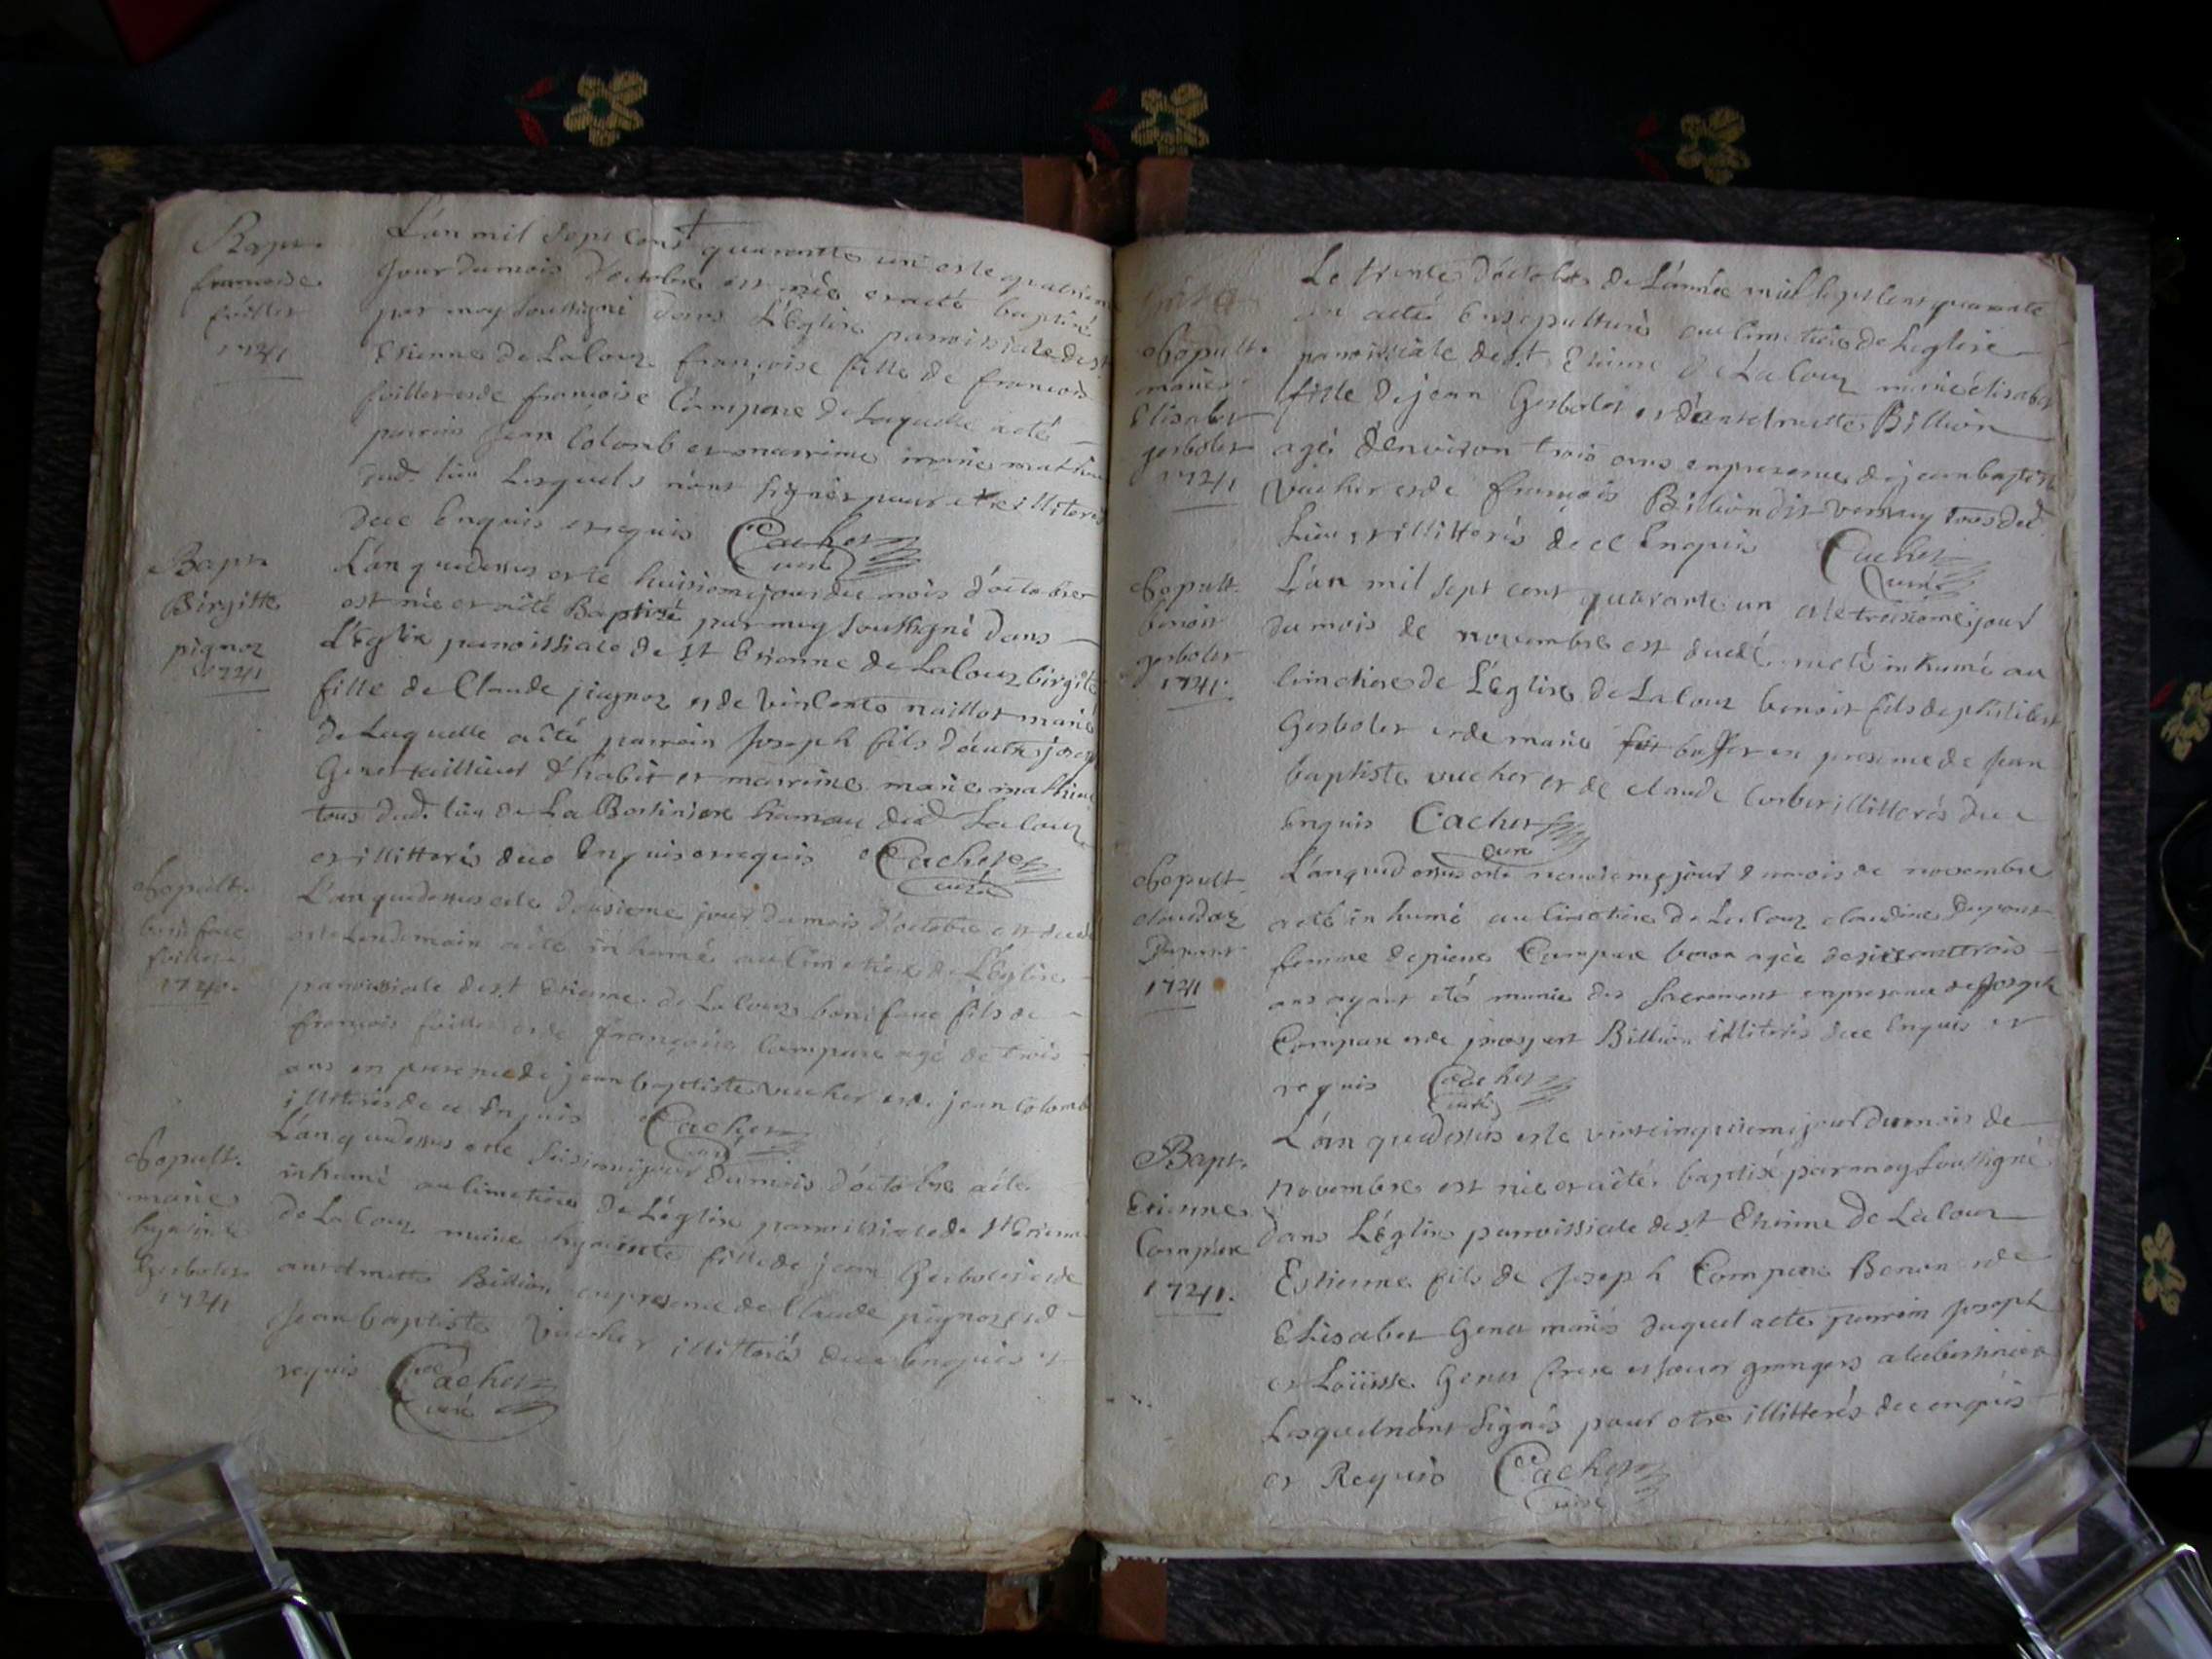 Bapt.
francoise
foillet
1741
L'an mil sept cent quarante un et le quatrieme
jour du mois d'octobre est née et a eté baptisé
par moy soussigné dans L'Eglise paroissiale de st
Etienne de Lalouz françoise fille de francois
foillet et de françoise Compere de Laquelle a eté
parrein jean Colomb et marrine
dud. lieu Lesquels n'ont signés pour etre illiteres
de ce Enquis et requis Cachet
curé
Bapt.
Birgitte
pignoz
1741
L'an que dessus et le huitiome jour du mois d'octobre
est née et a eté Baptisé par moy soussigné dans
L'Eglise paroissiale de st Etienne de Lalouz birgitte
fille de Claude pignoz et de vinCente naillot mariés
de Laquelle a eté parrein Joseph fils d'autre joseph
Genet taillieur d'habit et marrine marie
tous dud. lieu de La Bertiniere hameau dud Lalouz
et illitterés de ce Enquis et requis Cachet
curé
Sepult.
boniface
foillet
1740.
L'an que dessus et le dousieme jour du mois d'octobre est decedé
et le Lendemain a eté inhumé au Cimetiere de L'Eglise
paroissiale de s.t Etienne de Lalouz boniface fils de
François foillet et de françoise Compere agé de trois
ans en presence de jean baptiste vucher et de jean Colomb
illiterés de ce Enquis Cachet
curé
Sepult.
marie
hyacinte
Gerbolet
1741
L'an que dessus et le jour du mois d'octobre a eté
inhumé au Cimetiere de L'Eglise paroissiale de st Etienne
de Lalouz marie hyacinte fille de jean Gerbolet et de
Billion en presence de Claude pignoz et de
Jean baptiste Vucher illitterés de ce Enquis et
requis Cachet
curé
Sepult.
marie
Elisabet
gerbolet
1741
Le trente d'octobre de L'année mil sept cent quarante
un a eté Ensepulturé au Cimetiere de Leglise
paroissiale de s.t Etienne de Lalouz marie élisabet
fille de jean Gerbolet et d' Billion
agé d'environ trois ans en presence de jean baptiste
Vucher et de françois Billion dit tous dud
Lieu et illitterés de ce Enquis Cachet
curé
Sepult.
benoit
gerbolet
1741.
L'an mil sept cent quarante un et le troisiome jour
du mois de novembre est decedé, a eté inhumé au
Cimetiere de L'Eglise de Lalouz benoit fils de philibert
Gerbolet et de marie en presence de Jean
baptiste vucher et de claude illitterés de ce
Enquis Cachet
curé
Sepult.
claudaz
Dupont
1741
L'an que dessus et le neuvieme jour du mois de novembre
a eté inhumé au Cimetiere de Lalouz claudine Dupont
femme de pierre Compere benon agée de
ans ayant eté munie des sacrement en presence de Joseph
Compere et de prospert Billion illiterés de ce Enquis et
requis Cachet
curé
Bapt.
Etienne
Compere
1741.
L'an que dessus et le vintcinquieme jour du mois de
novembre est née et a eté baptisé par moy soussigné
dans L'Eglise paroissiale de st Etienne de Lalouz
Estienne fils de Joseph Compere Benon et de
Elisabet Genet mariés duquel a eté parrein joseph
et Loüisse Genet frere et soeur grangers a la bertiniere
Lesquel n'ont signés pour etre illitterés de ce enquis
et Requis Cachet
curé